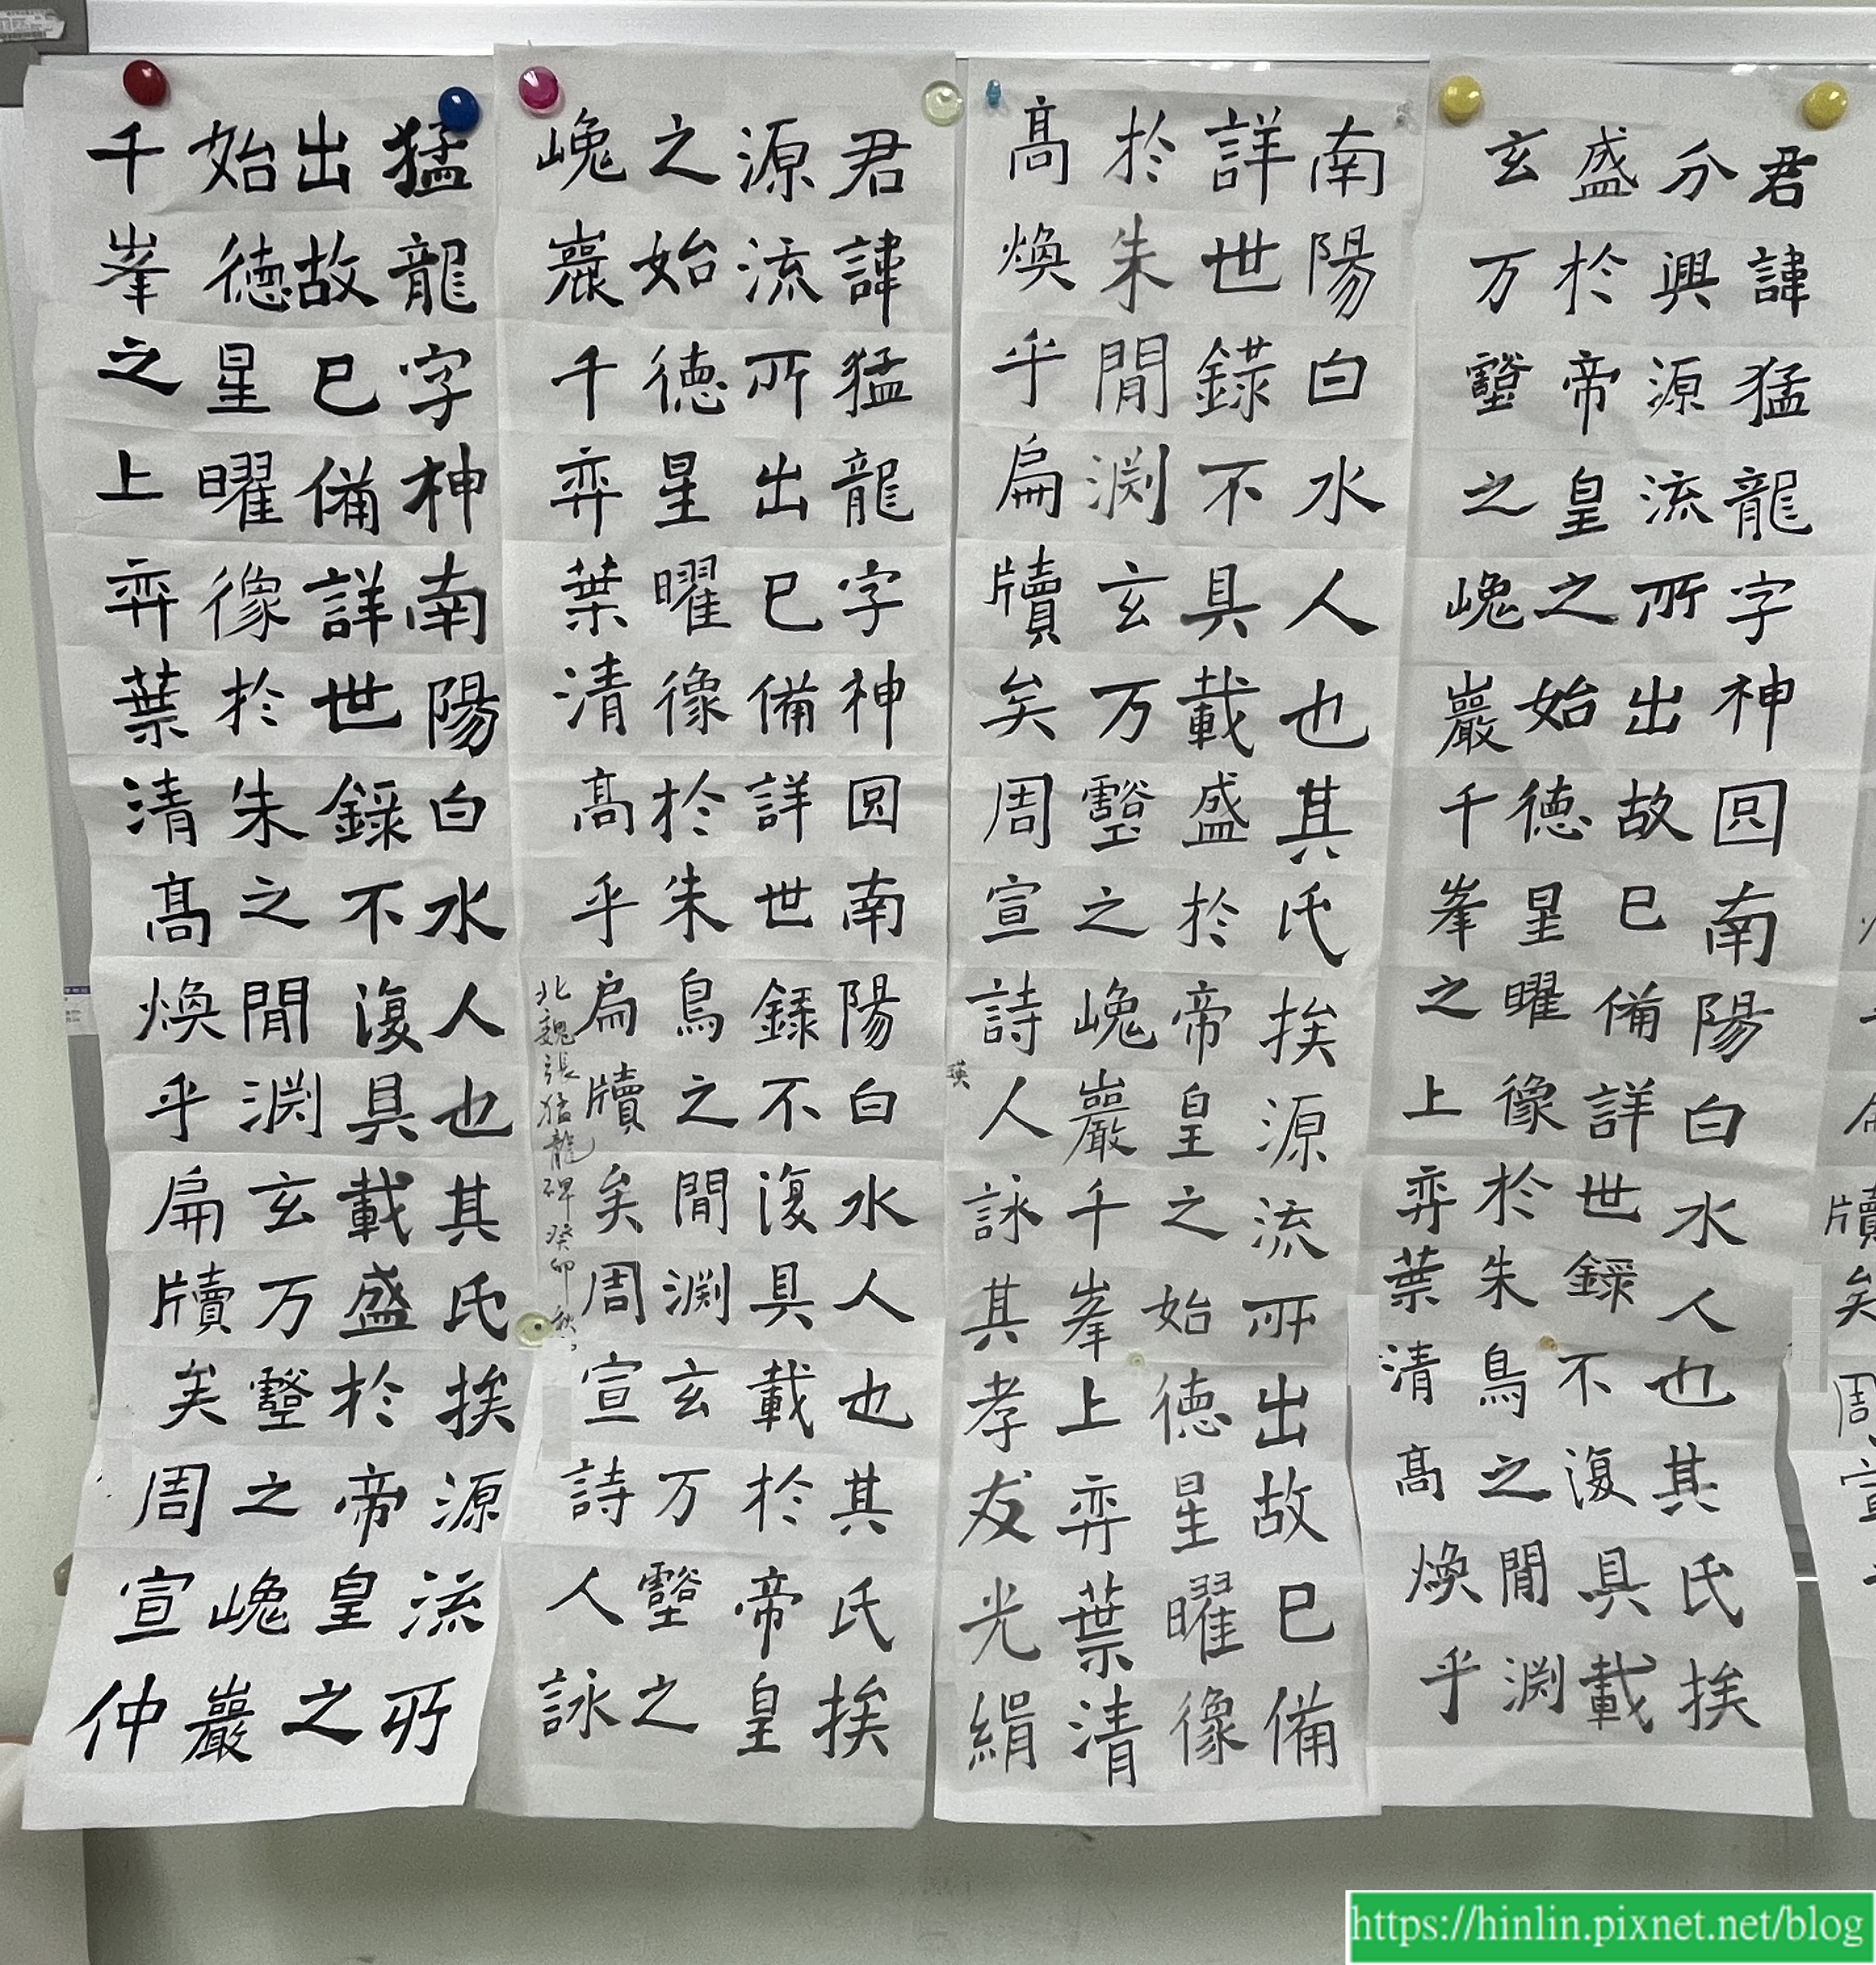 牘矣周宣
君諱猛龍字神囧南陽白水人也其氏挨
分興源流所出故已備詳世錄不復具載
盛於帝皇之始德星曜像於朱鳥之閒渕
玄万壑之巉巖千峯之上弈葉清高煥乎
南陽白水人也其氏挨源流所出故已備
詳世錄不具載盛於帝皇之始德星曜像
於朱閒渕玄万壑之巉巖千峯上弈葉清
高煥乎扁牘矣周宣詩人詠其孝友光絹
瑛
君諱猛龍字神囧南陽白水人也其氏挨
源流所出已備詳世錄不復具載於帝皇
之始德星曜像於朱鳥之閒渕玄万壑之
巉巖千弈葉清高乎扁牘矣周宣詩人詠
北魏張猛龍碑癸卯秋
猛龍字神南陽白水人也其氏挨源流所
出故已備詳世錄不復具載盛於帝皇之
始德星曜像於朱之閒渕玄万壑之巉巖
千峯之上弈葉清高煥乎扁牘矣周宣仲
https://hinlin.pixnet.net/blog